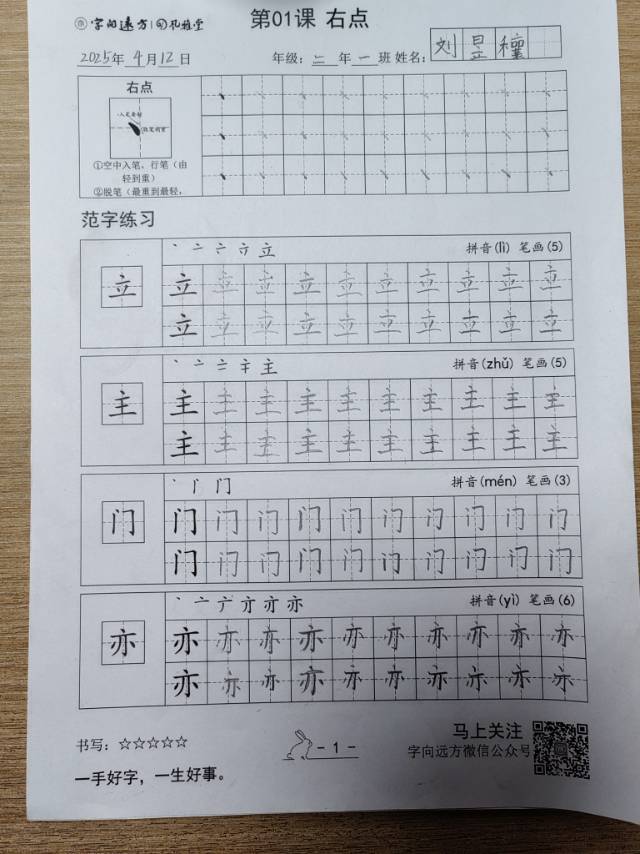 字向远方 孔雅堂 第01课 右点
2025年 4月12日 年级：二年一班 姓名：刘昱穰
右点
①空中入笔、行笔（由
轻到重）
②脱笔（最重到最轻，
范字练习
丶 亠 亠 立 拼音(lì) 笔画(5)
立 立 立 立 立 立 立 立 立 立 立
立 立 立 立 立 立 立 立 立 立
丶 亠 二 主 拼音(zhǔ) 笔画(5)
主 主 主 主 主 主 主 主 主 主 主
主 主 主 主 主 主 主 主 主 主
丶 门 拼音(mén) 笔画(3)
门 门 门 门 门 门 门 门 门 门 门
门 门 门 门 门 门 门 门 门 门
丶 亠 亦 拼音(yì) 笔画(6)
亦 亦 亦 亦 亦 亦 亦 亦 亦 亦 亦
亦 亦 亦 亦 亦 亦 亦 亦 亦 亦
书写：☆☆☆☆☆ - 1 - 马上关注
字向远方微信公众号
一手好字，一生好事。